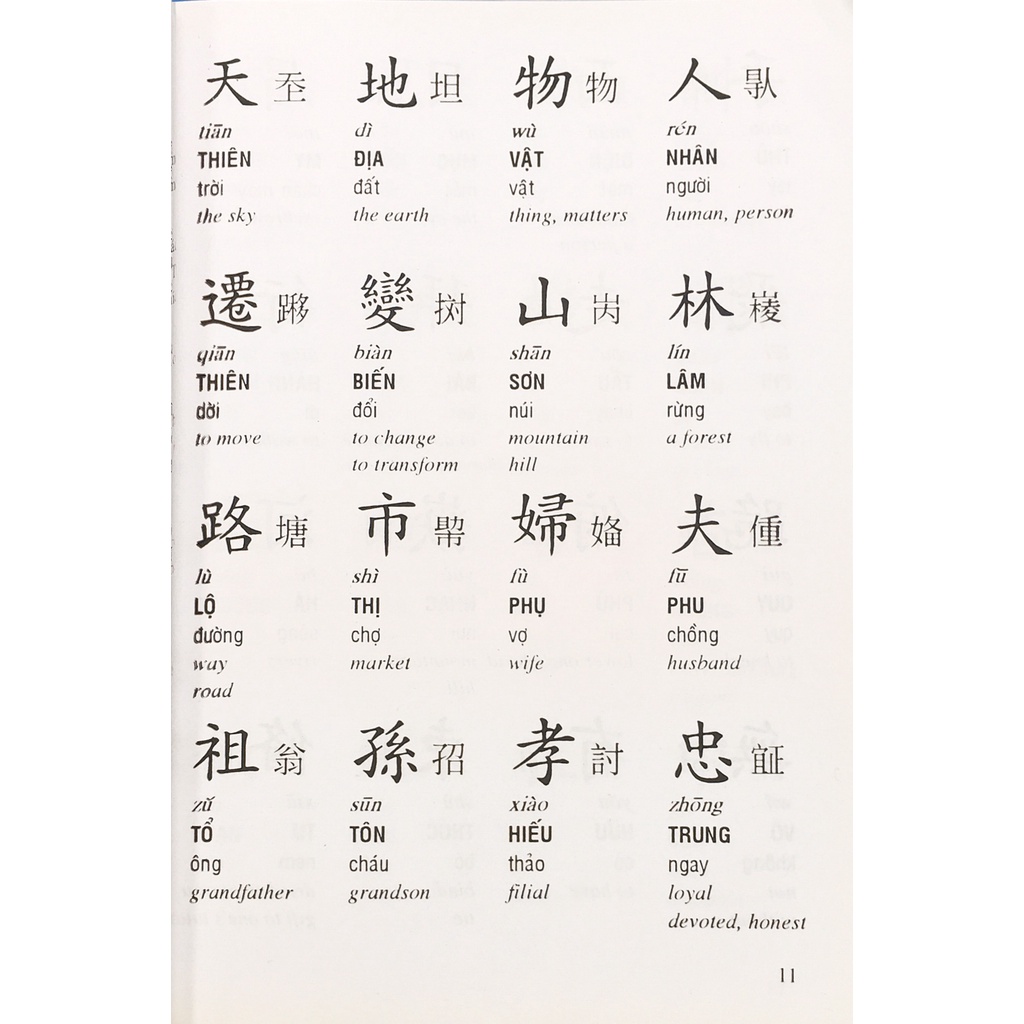 天 地 坦 物 物 人 𠊛
tiān dì wù rén
THIÊN ĐỊA VẬT NHÂN
trời đất vật người
the sky the earth thing, matters human, person
遷 變 山 𡶀 林
qiān biàn shān lín
THIÊN BIẾN SƠN LÂM
dời đổi núi rừng
to move to change mountain a forest
to transform hill
路 塘 市 𢄂 婦 夫 偅
lù shì fù fū
LỘ THỊ PHỤ PHU
đường chợ vợ chồng
way market wife husband
road
祖 翁 孫 𡥙 孝 討 忠 𣦍
zǔ sūn xiào zhōng
TỔ TÔN HIẾU TRUNG
ông cháu thảo ngay
grandfather grandson filial loyal
devoted, honest
11